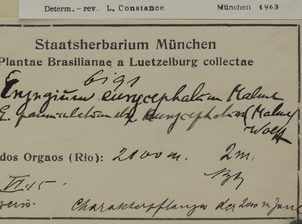 Determ.-rev. L. Constance München 1963
Staatsherbarium München
Plantae Brasilianae a Luetzelburg collectae
6191
Eryngium eurycephalum Malme
E. paniculatum eurycephalum (Malme)
Wolff
dos Orgaos (Rio): 2100 m. 2m.
VI. 15.
Charakterpflanze der 2000 m